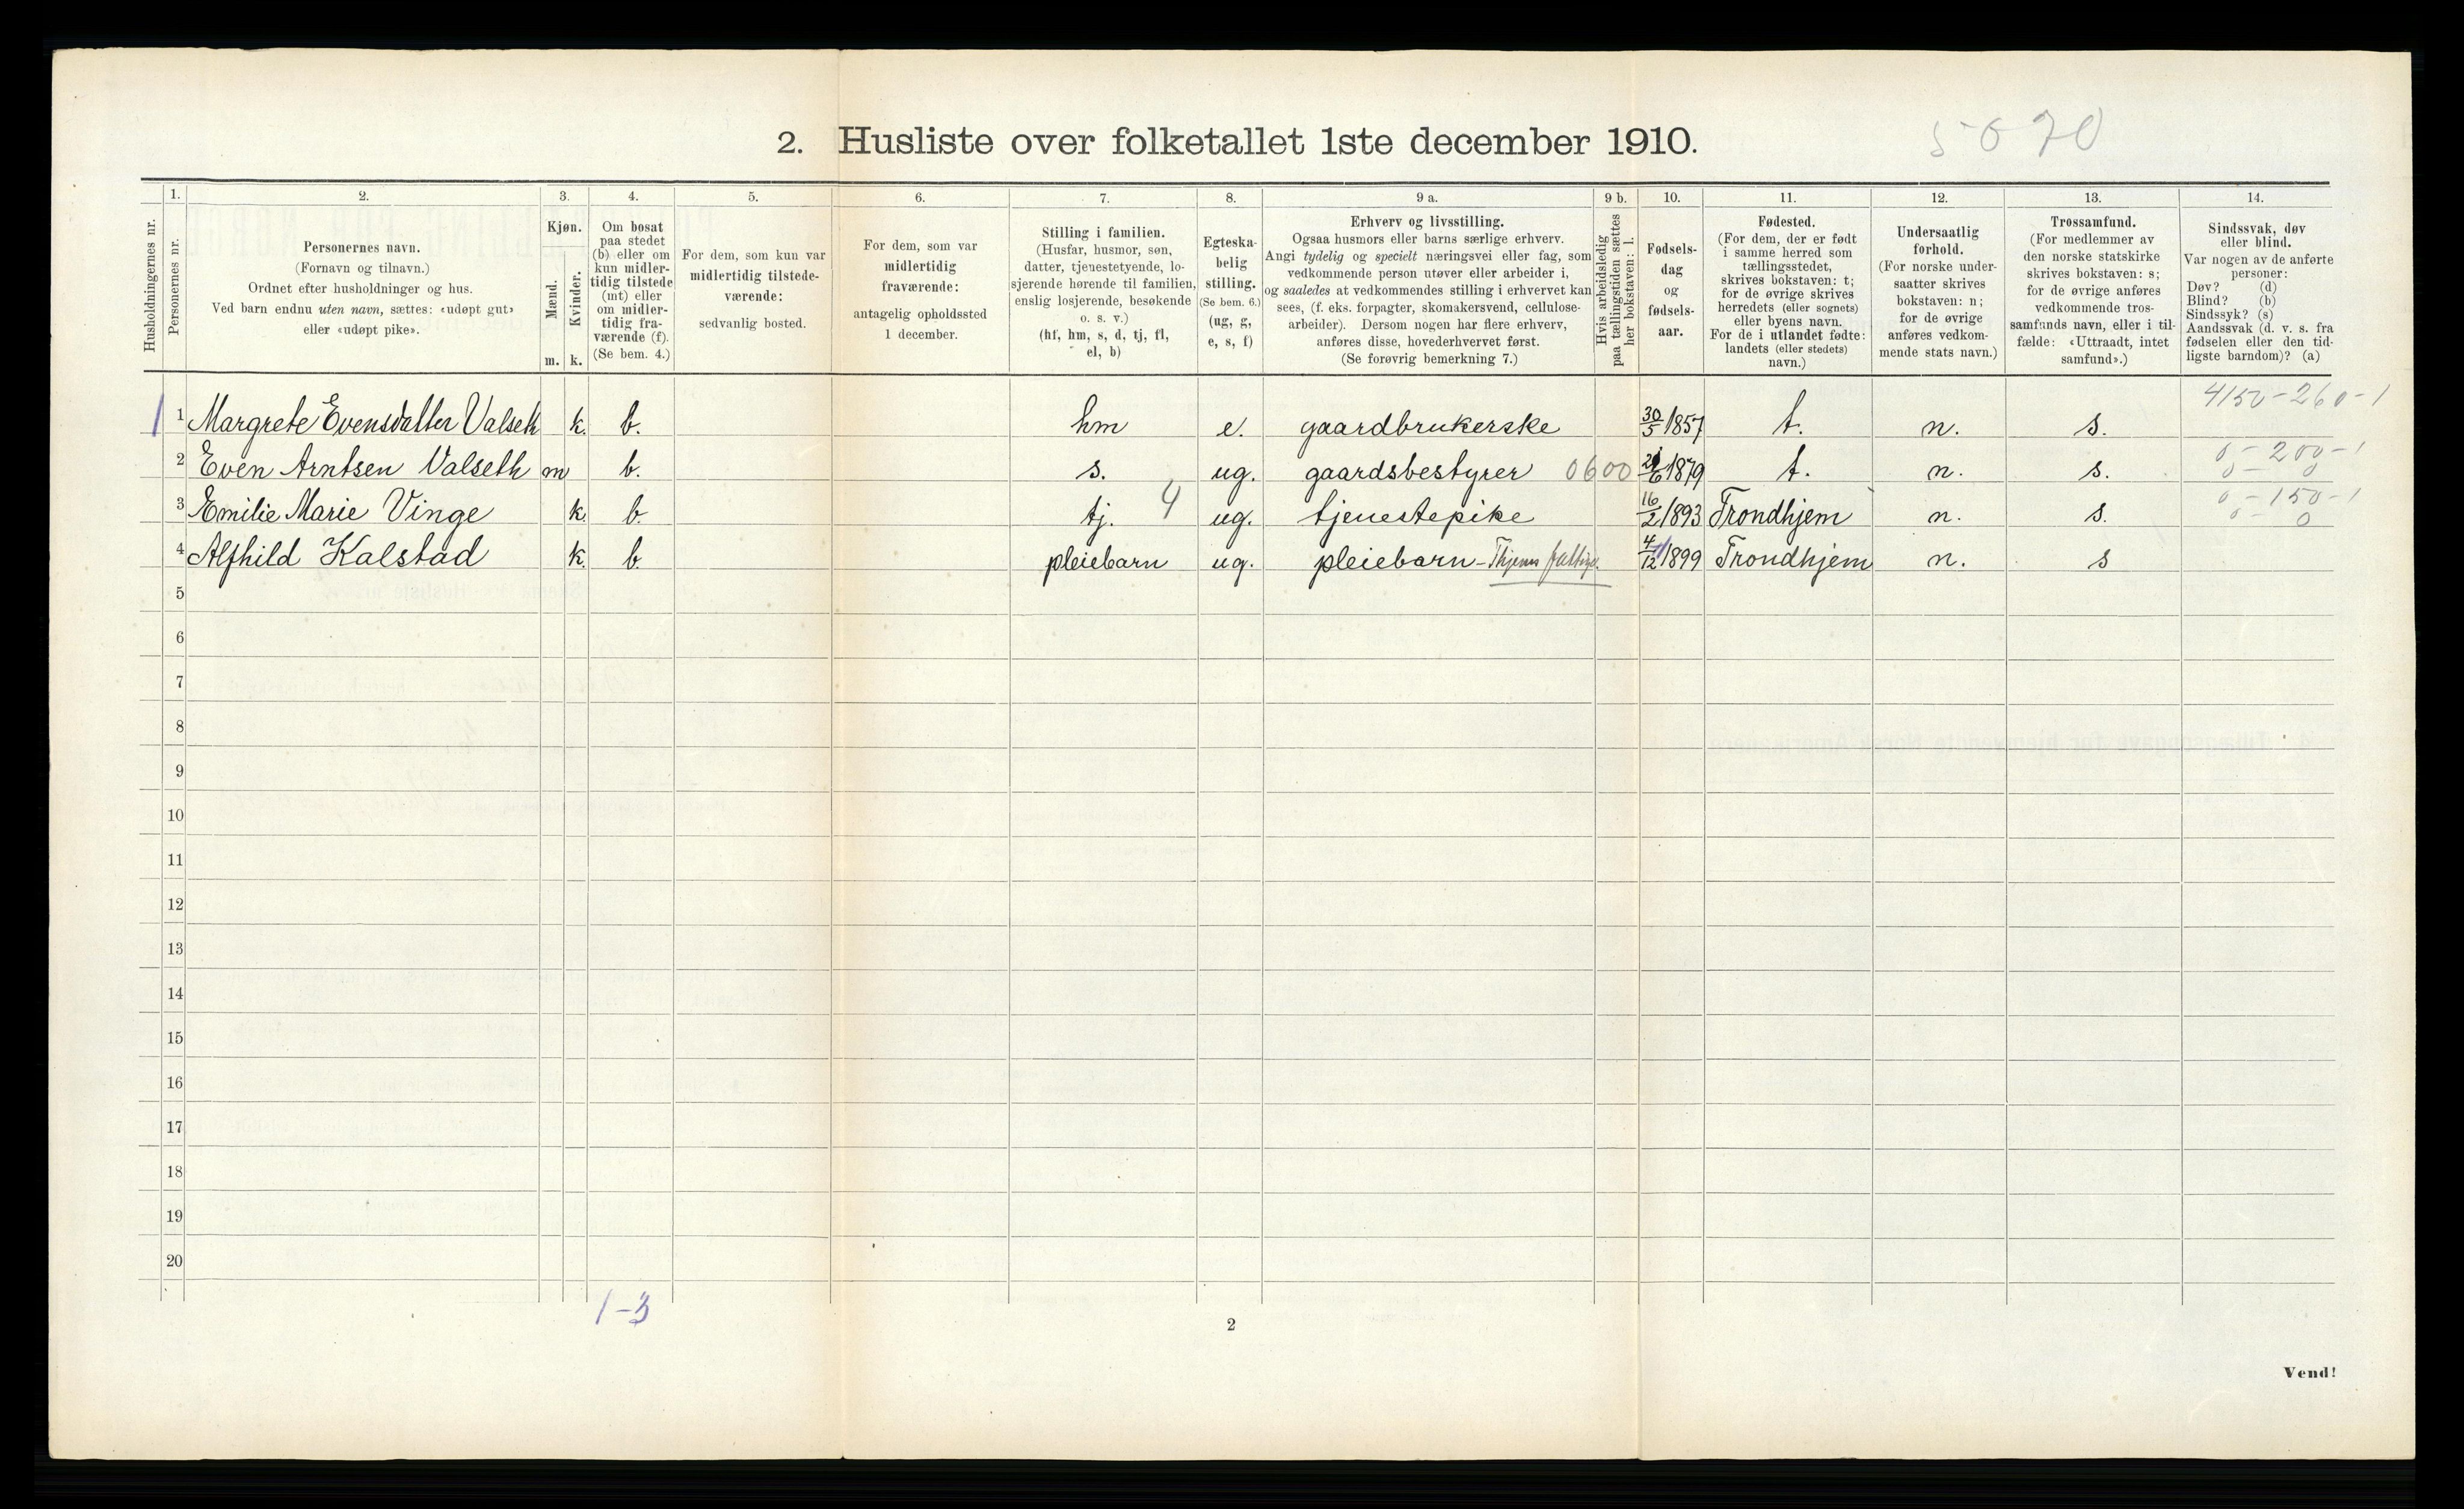 2. Husliste over folketallet 1ste december 1910.
5070
Husholdningernes nr.
1.
Personernes nr.
2.
Personernes navn.
(Fornavn og tilnavn.)
Ordnet efter husholdninger og hus.
Ved barn endnu uten navn, sættes: «udøpt gut»
eller «udøpt pike».
3.
Kjøn.
Mænd.
Kvinder.
m. k.
4.
Om bosat
paa stedet
(b) eller om
kun midler-
tidig tilstede
(mt) eller
om midler-
tidig fra-
værende (f).
(Se bem. 4.)
5.
For dem, som kun var
midlertidig tilstede-
værende:
sedvanlig bosted.
6.
For dem, som var
midlertidig
fraværende:
antagelig opholdssted
1 december.
7.
Stilling i familien.
(Husfar, husmor, søn,
datter, tjenestetyende, lo-
sjerende hørende til familien,
enslig losjerende, besøkende
o. s. v.)
(hf, hm, s, d, tj, fl,
el, b)
8.
Egteska-
belig
stilling.
(Se bem. 6.)
(ug, g,
e, s, f)
9 a.
Erhverv og livsstilling.
Ogsaa husmors eller barns særlige erhverv.
Angi tydelig og specielt næringsvei eller fag, som
vedkommende person utøver eller arbeider i,
og saaledes at vedkommendes stilling i erhvervet kan
sees, (f. eks. forpagter, skomakersvend, cellulose-
arbeider). Dersom nogen har flere erhverv,
anføres disse, hovederhvervet først.
(Se forøvrig bemerkning 7.)
9 b.
Hvis arbeidsledig
paa tællingstiden sættes
her bokstaven: l.
10.
Fødsels-
dag
og
fødsels-
aar.
11.
Fødested.
(For dem, der er født
i samme herred som
tællingsstedet,
skrives bokstaven: t;
for de øvrige skrives
herredets (eller sognets)
eller byens navn.
For de i utlandet fødte:
landets (eller stedets)
navn.)
12.
Undersaatlig
forhold.
(For norske under-
saatter skrives
bokstaven: n;
for de øvrige
anføres vedkom-
mende stats navn.)
13.
Trossamfund.
(For medlemmer av
den norske statskirke
skrives bokstaven: s;
for de øvrige anføres
vedkommende tros-
samfunds navn, eller i til-
fælde: «Uttraadt, intet
samfund».)
14.
Sindssvak, døv
eller blind.
Var nogen av de anførte
personer:
Døv? (d)
Blind? (b)
Sindssyk? (s)
Aandssvak (d. v. s. fra
fødselen eller den tid-
ligste barndom)? (a)
4150-260-1
1 1 Margrete Evensdatter Valseth k. b. hm e. gaardbrukerske 30/5 1857 t. n. s.
0-200-1
2 Even Arntsen Valseth m b. s. ug. gaardsbestyrer 0600 /6 1879 t. n. s. 0- 0
0-150-1
3 Emilie Marie Vinge k. b tj. 4 ug. tjenestepike 16/2 1893 Trondhjem n. s. 0- 0
4 Alfhild Kalstad k. b. pleiebarn ug. pleiebarn - Thjems fattigv. 4/12 1899 Trondhjem n. s
5
6
7
8
9
10
11
12
13
14
15
16
17
18
19
20
1-3
2
Vend!